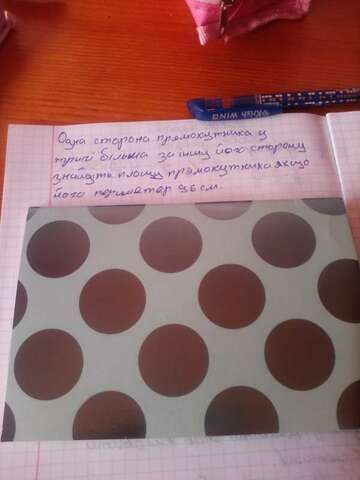 Krish WING
Одна сторона прямокутника у
тричі більша за іншу його сторону
знайдіть площу прямокутника якщо
його периметр 96 см.